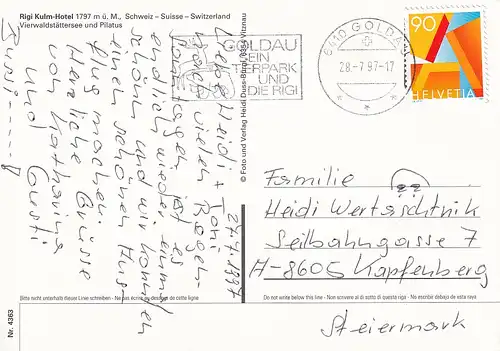 Rigi Kulm-Hotel 1797 m ü. M., Schweiz – Suisse – Switzerland
Vierwaldstättersee und Pilatus
GOLDAU
EIN
TIERPARK
UND
DIE RIGI
6410 GOLDAU
28.-7.97-17
90
HELVETIA
27.7.1997
Liebe Heidi + Toni
Nach vielen Regen-
tagen ist es
endlich wieder einmal
schön und wir konnten
einen schönen Aus-
flug machen.
Herzliche Grüsse
von Katharina
und Gusti
© Foto und Verlag Heidi Duss-Bürgi, 6354 Vitznau
Familie
Heidi
Seilbahngasse 7
A-8605 Kapfenberg
Steiermark
Bitte nicht unterhalb dieser Linie schreiben - Ne pas écrire au dessous de cette ligne
Do not write below this line - Non scrivere al di sotto di questa riga - No escribir debajo de esta raya
Nr. 4363